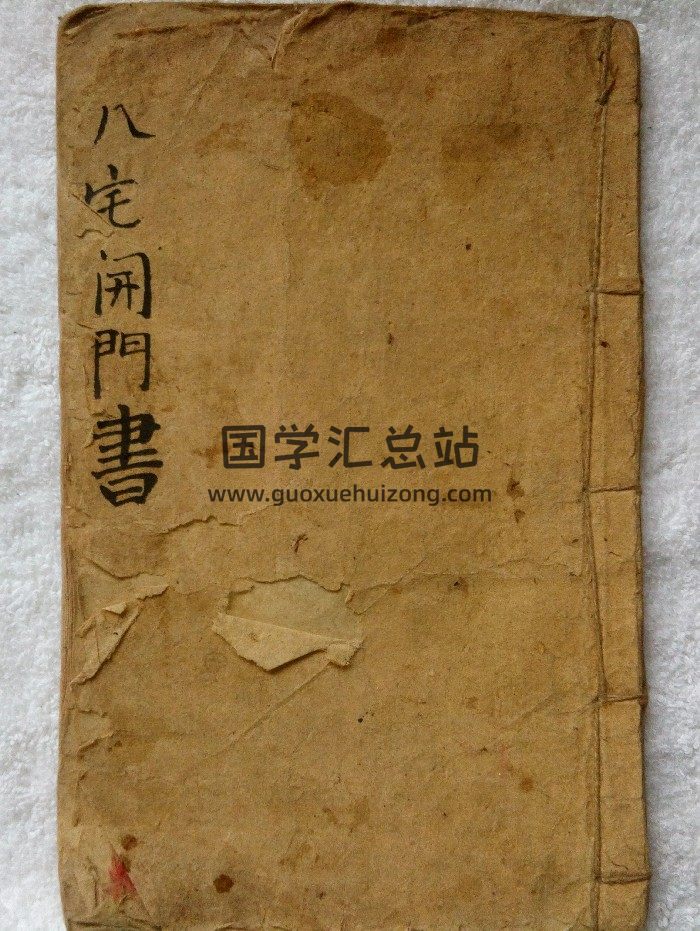 八宅開門書
国学汇总站
www.guoxuehuizong.com